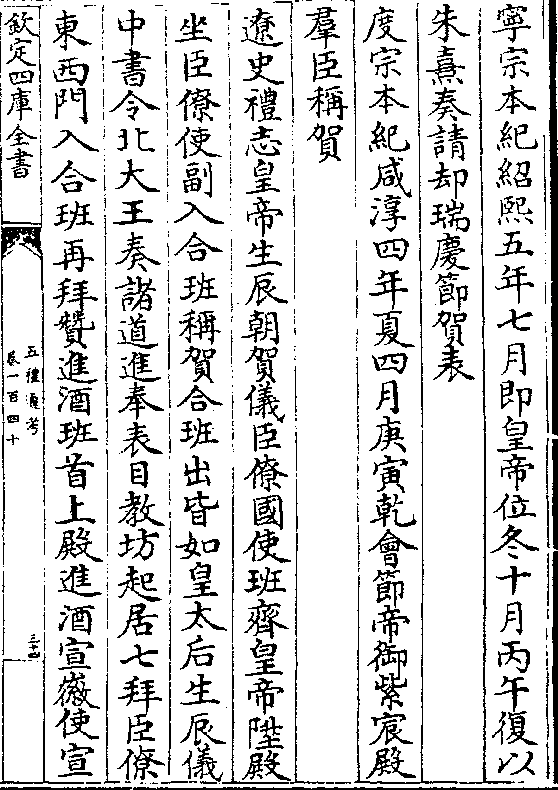 寧宗本紀紹熙五年七月即皇帝位冬十月丙午復以
朱熹奏請却瑞慶節賀表
度宗本紀咸淳四年夏四月庚寅乾會節帝御紫宸殿
羣臣稱賀
遼史禮志皇帝生辰朝賀儀臣僚國使班齊皇帝陞殿
坐臣僚使副入合班稱賀合班出皆如皇太后生辰儀
中書令北大王奏諸道進奉表目教坊起居七拜臣僚
東西門入合班再拜贊進酒班首上殿進酒宣徽使宣
欽定四庫全書
五禮通考
卷一百四十
三十四